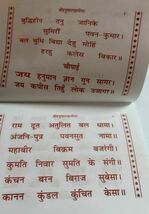 श्रीहनुमानचालीसा
बुद्धिहीन तनु जानिके
सुमिरौं पवन-कुमार।
बल बुधि बिद्या देहु मोहिं
हरहु कलेस बिकार।
चौपाई
जय हनुमान ज्ञान गुन सागर।
जय कपीस तिहुँ लोक उजागर॥
श्रीहनुमानचालीसा
राम दूत अतुलित बल धामा।
अंजनि-पुत्र पवनसुत नामा॥
महाबीर बिक्रम बजरंगी।
कुमति निवार सुमति के संगी॥
कंचन बरन बिराज सुबेसा।
कानन कुंडल कुंचित केसा॥